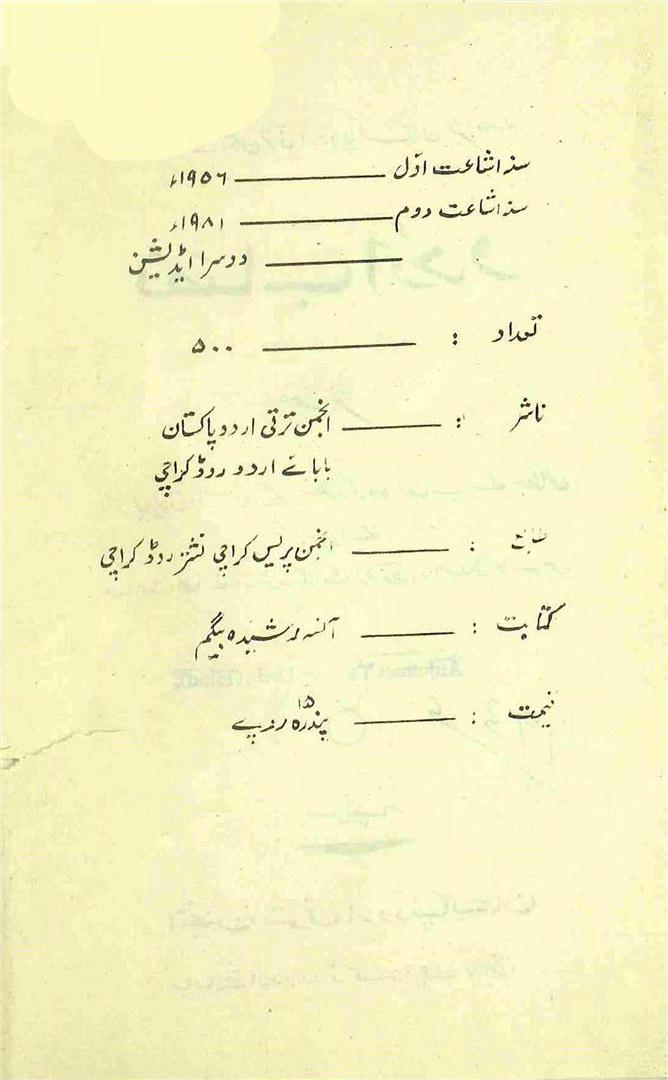 سنہ اشاعت اوّل ـــــــــ ۱۹۵۶ء
سنہ اشاعت دوم ـــــــــ ۱۹۸۱ء
ـــــــــ دوسرا ایڈیشن
تعداد : ـــــــــ ۵۰۰
ناشر : ـــــــــ انجمن ترقی اردو پاکستان
بابائے اردو روڈ کراچی
طابع : ـــــــــ انجمن پریس کراچی نشتر روڈ کراچی
کتابت : ـــــــــ آنسہ رشیدہ بیگم
قیمت : ـــــــــ پندرہ ۱۵ روپے